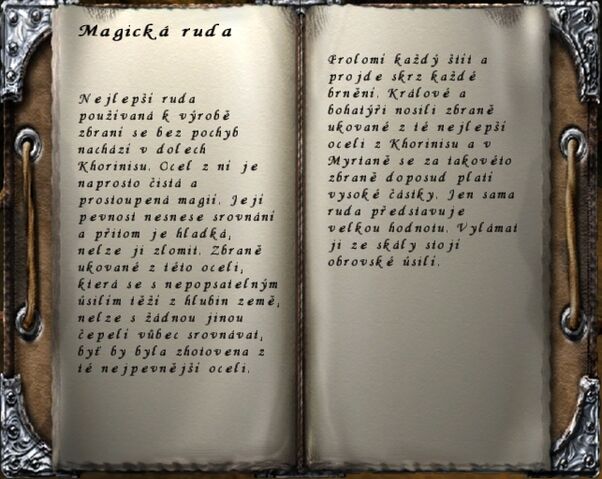 Magická ruda
Nejlepší ruda
používaná k výrobě
zbraní se bez pochyb
nachází v dolech
Khorinisu. Ocel z ní je
naprosto čistá a
prostoupená magií. Její
pevnost nesnese srovnání
a přitom je hladká,
nelze ji zlomit. Zbraně
ukované z této oceli,
která se s nepopsatelným
úsilím těží z hlubin země,
nelze s žádnou jinou
čepelí vůbec srovnávat,
byť by byla zhotovena z
té nejpevnější oceli.
Prolomí každý štít a
projde skrz každé
brnění. Králové a
bohatýři nosili zbraně
ukované z té nejlepší
oceli z Khorinisu a v
Myrtaně se za takovéto
zbraně doposud platí
vysoké částky. Jen sama
ruda představuje
velkou hodnotu. Vylámat
ji ze skály stojí
obrovské úsilí.